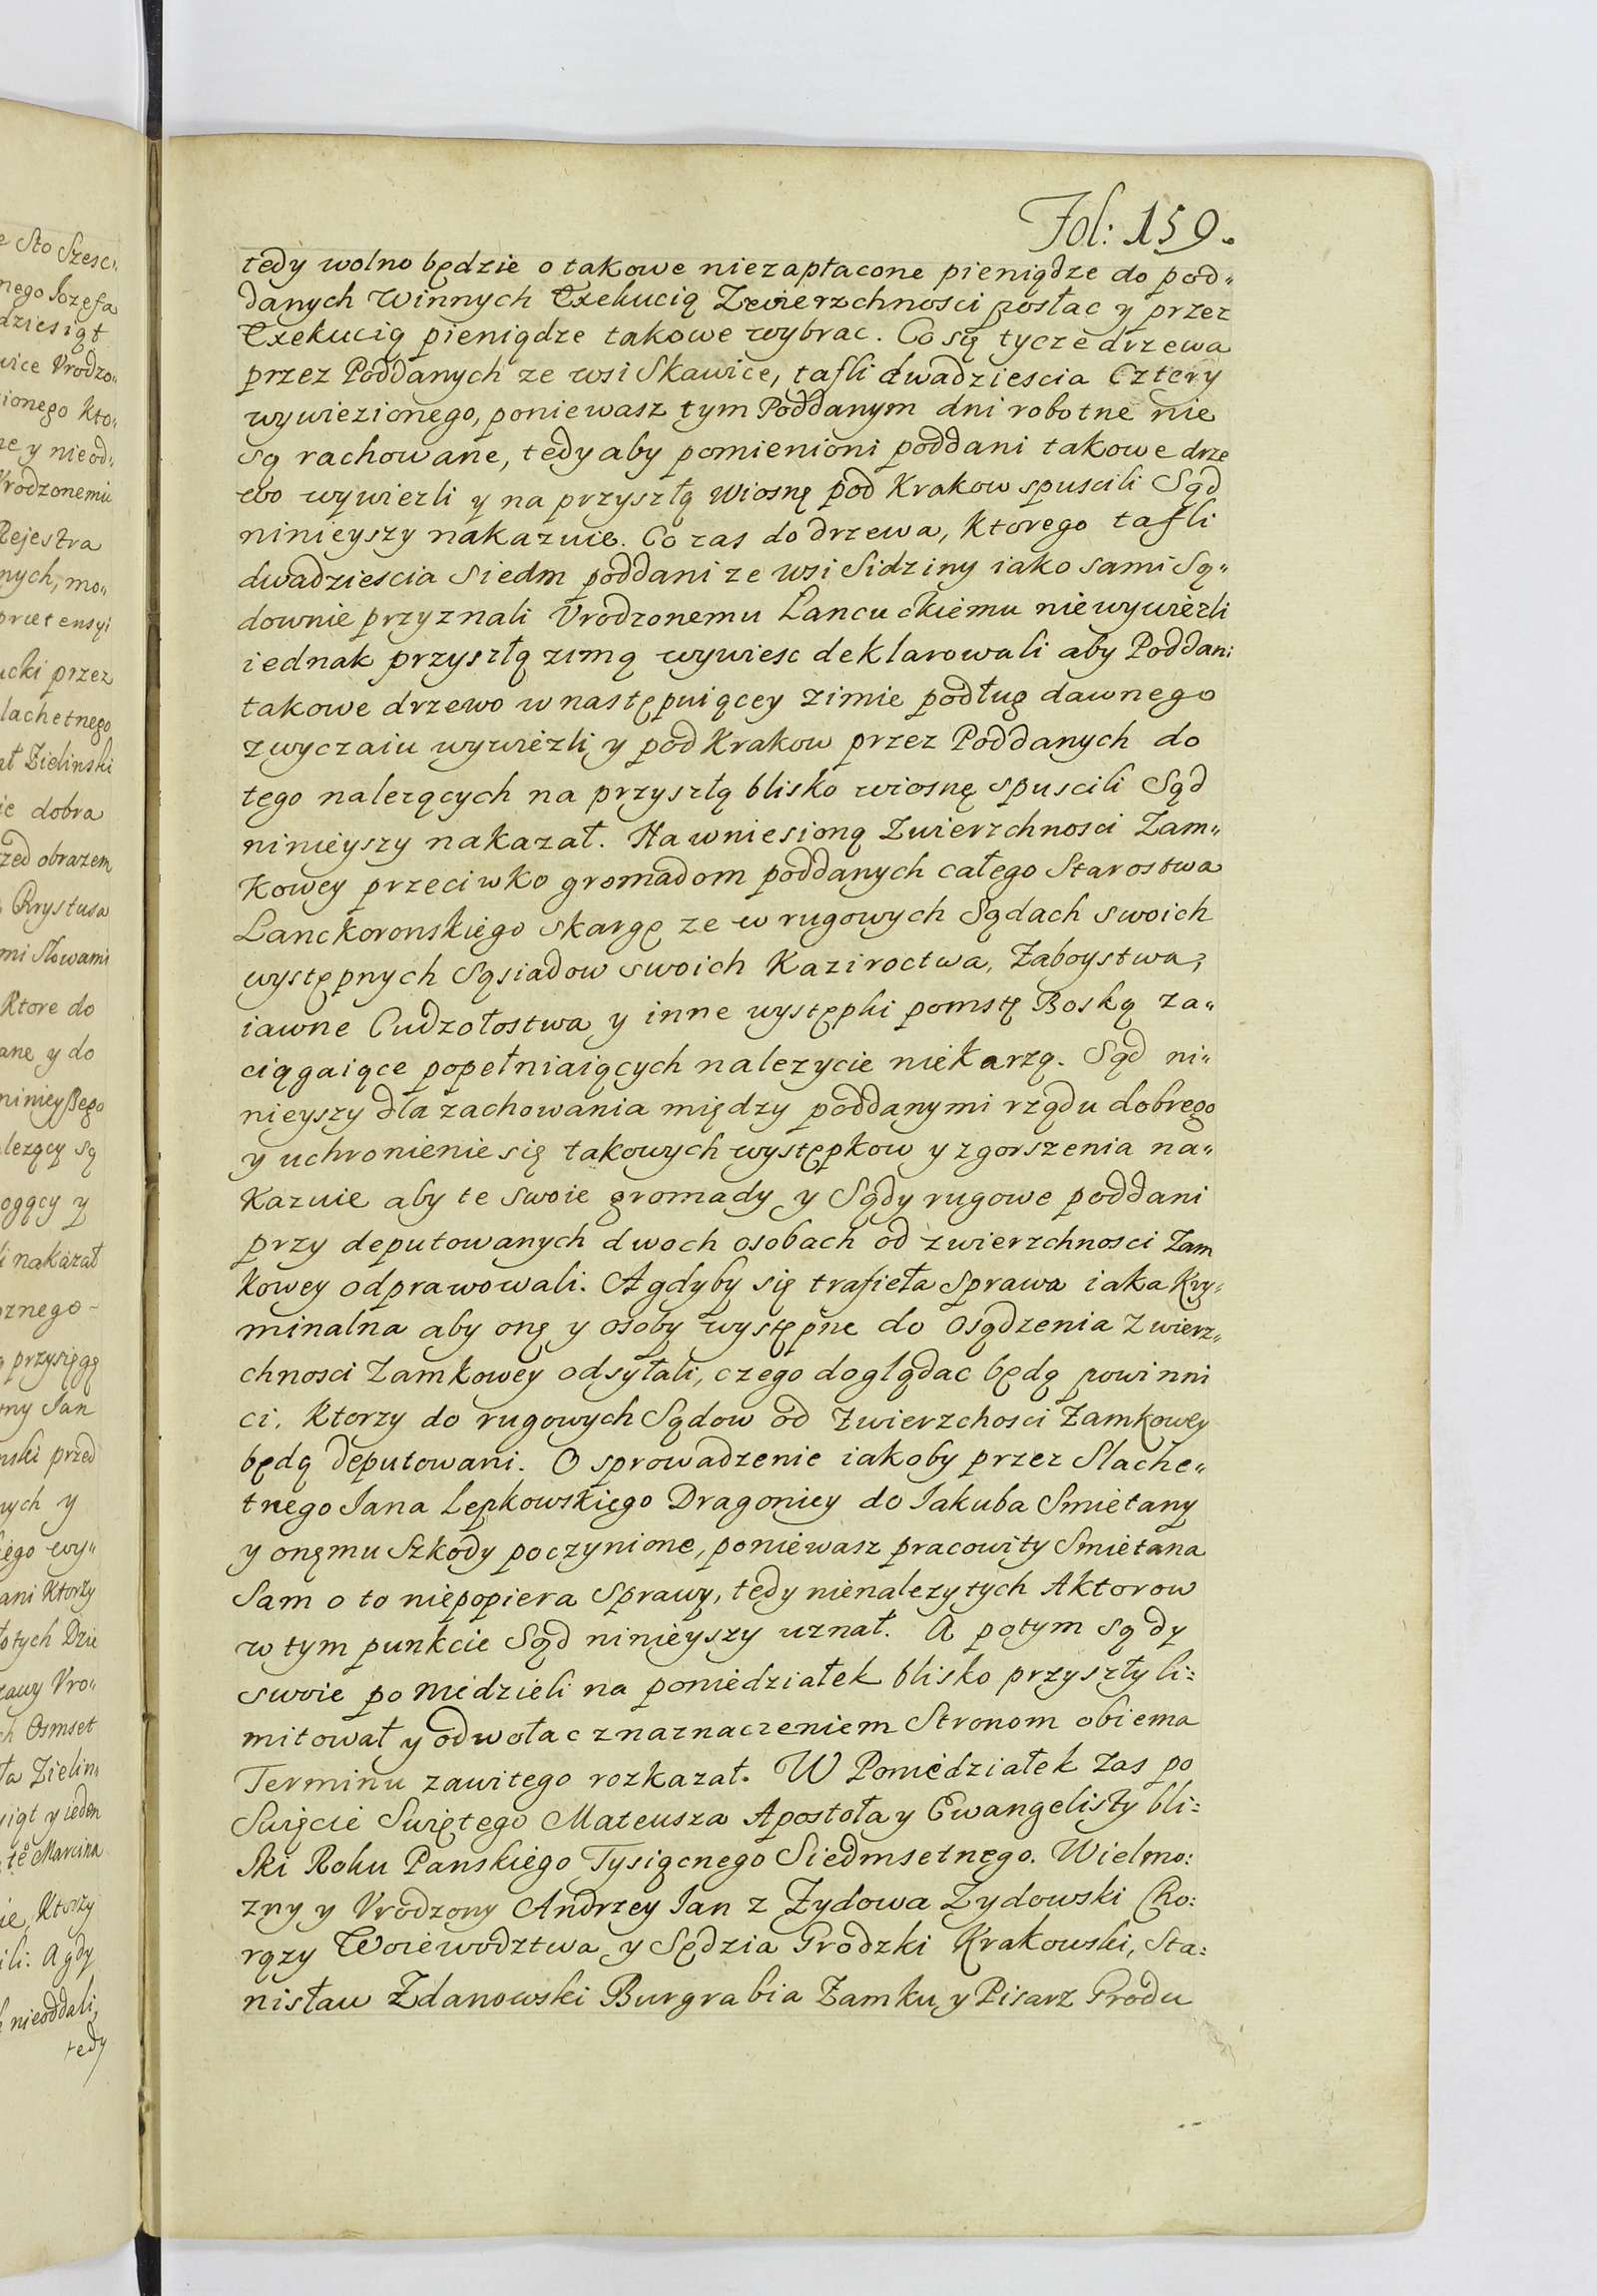 Fol: 159.
tedy wolno będzie o takowe niezapłacone pieniądze do pod„
danych Winnych Exekucią Zwierzchnosci posłac y przez
Exekucią pieniądze takowe wybrac. Co się tycze drzewa
przez Poddanych ze wsi Skawice, tafli dwadziescia Cztery
wywiezionego, poniewasz tym Poddanym dni robotne nie
są rachowane, tedy aby pomienioni poddani takowe drze
wo wywiezli y na przyszłą wiosnę pod Krakow spuscili Sąd
ninieyszy nakazuie. Co zas do drzewa, Ktorego tafli
dwadziescia Siedm poddani ze wsi Sidziny iako sami Są„
downie przyznali Vrodzonemu Lancuckiemu niewywiezli
iednak przyszłą zimą wywiesc deklarowali aby Poddani
takowe drzewo w następuiącey zimie podług dawnego
zwyczaiu wywiezli y pod Krakow przez Poddanych do
tego nalezących na przyszłą blisko wiosnę spuscili Sąd
ninieyszy nakazał. Na wniesioną Zwierzchnosci Zam„
Kowey przeciwko gromadom poddanych całego Starostwa
Lanckoronskiego skargę ze w rugowych Sądach swoich
występnych Sąsiadow swoich Kaziroctwa, Zaboystwa,
iawne Cudzołostwa y inne występki pomstę Boską za„
ciągaiące popełniaiących nalezycie niekarzą. Sąd ni„
nieyszy dla zachowania między poddanymi rządu dobrego
y uchronienie się takowych występkow y zgorszenia na„
Kazuie aby te swoie gromady y Sądy rugowe poddani
przy deputowanych dwoch osobach od zwierzchnosci Zam
kowey odprawowali. A gdyby się trafieła Sprawa iaka Kry„
minalna aby onę y osoby występne do Osądzenia Zwierz„
chnosci Zamkowey odsyłali, czego doglądac będą powinni
ci, Ktorzy do rugowych Sądow od Zwierzchosci Zamkowey
będą deputowani. O sprowadzenie iakoby przez Slache„
tnego Jana Lepkowskiego Dragoniey do Jakuba Smietany
y onęmu Szkody poczynione, poniewasz pracowity Smietana
Sam o to niepopiera Sprawy, tedy nienalezytych Aktorow
w tym punkcie Sąd ninieyszy uznał. A potym sądy
swoie po Niedzieli na poniedziałek blisko przyszły li:
mitował y odwołac z naznaczeniem Stronom obiema
Terminu zawitego rozkazał. W Poniedziałek zas po
Swięcie Swiętego Mateusza Apostoła y Ewangelisty bli:
ski Roku Panskiego Tysiącnego Siedmsetnego. Wielmo:
zny y Vrodzony Andrzey Jan z Zydowa Zydowski Cho:
rązy Woiewodztwa y Sędzia Grodzki Krakowski, Sta:
nisław Zdanowski Burgrabia Zamku y Pisarz Grodu